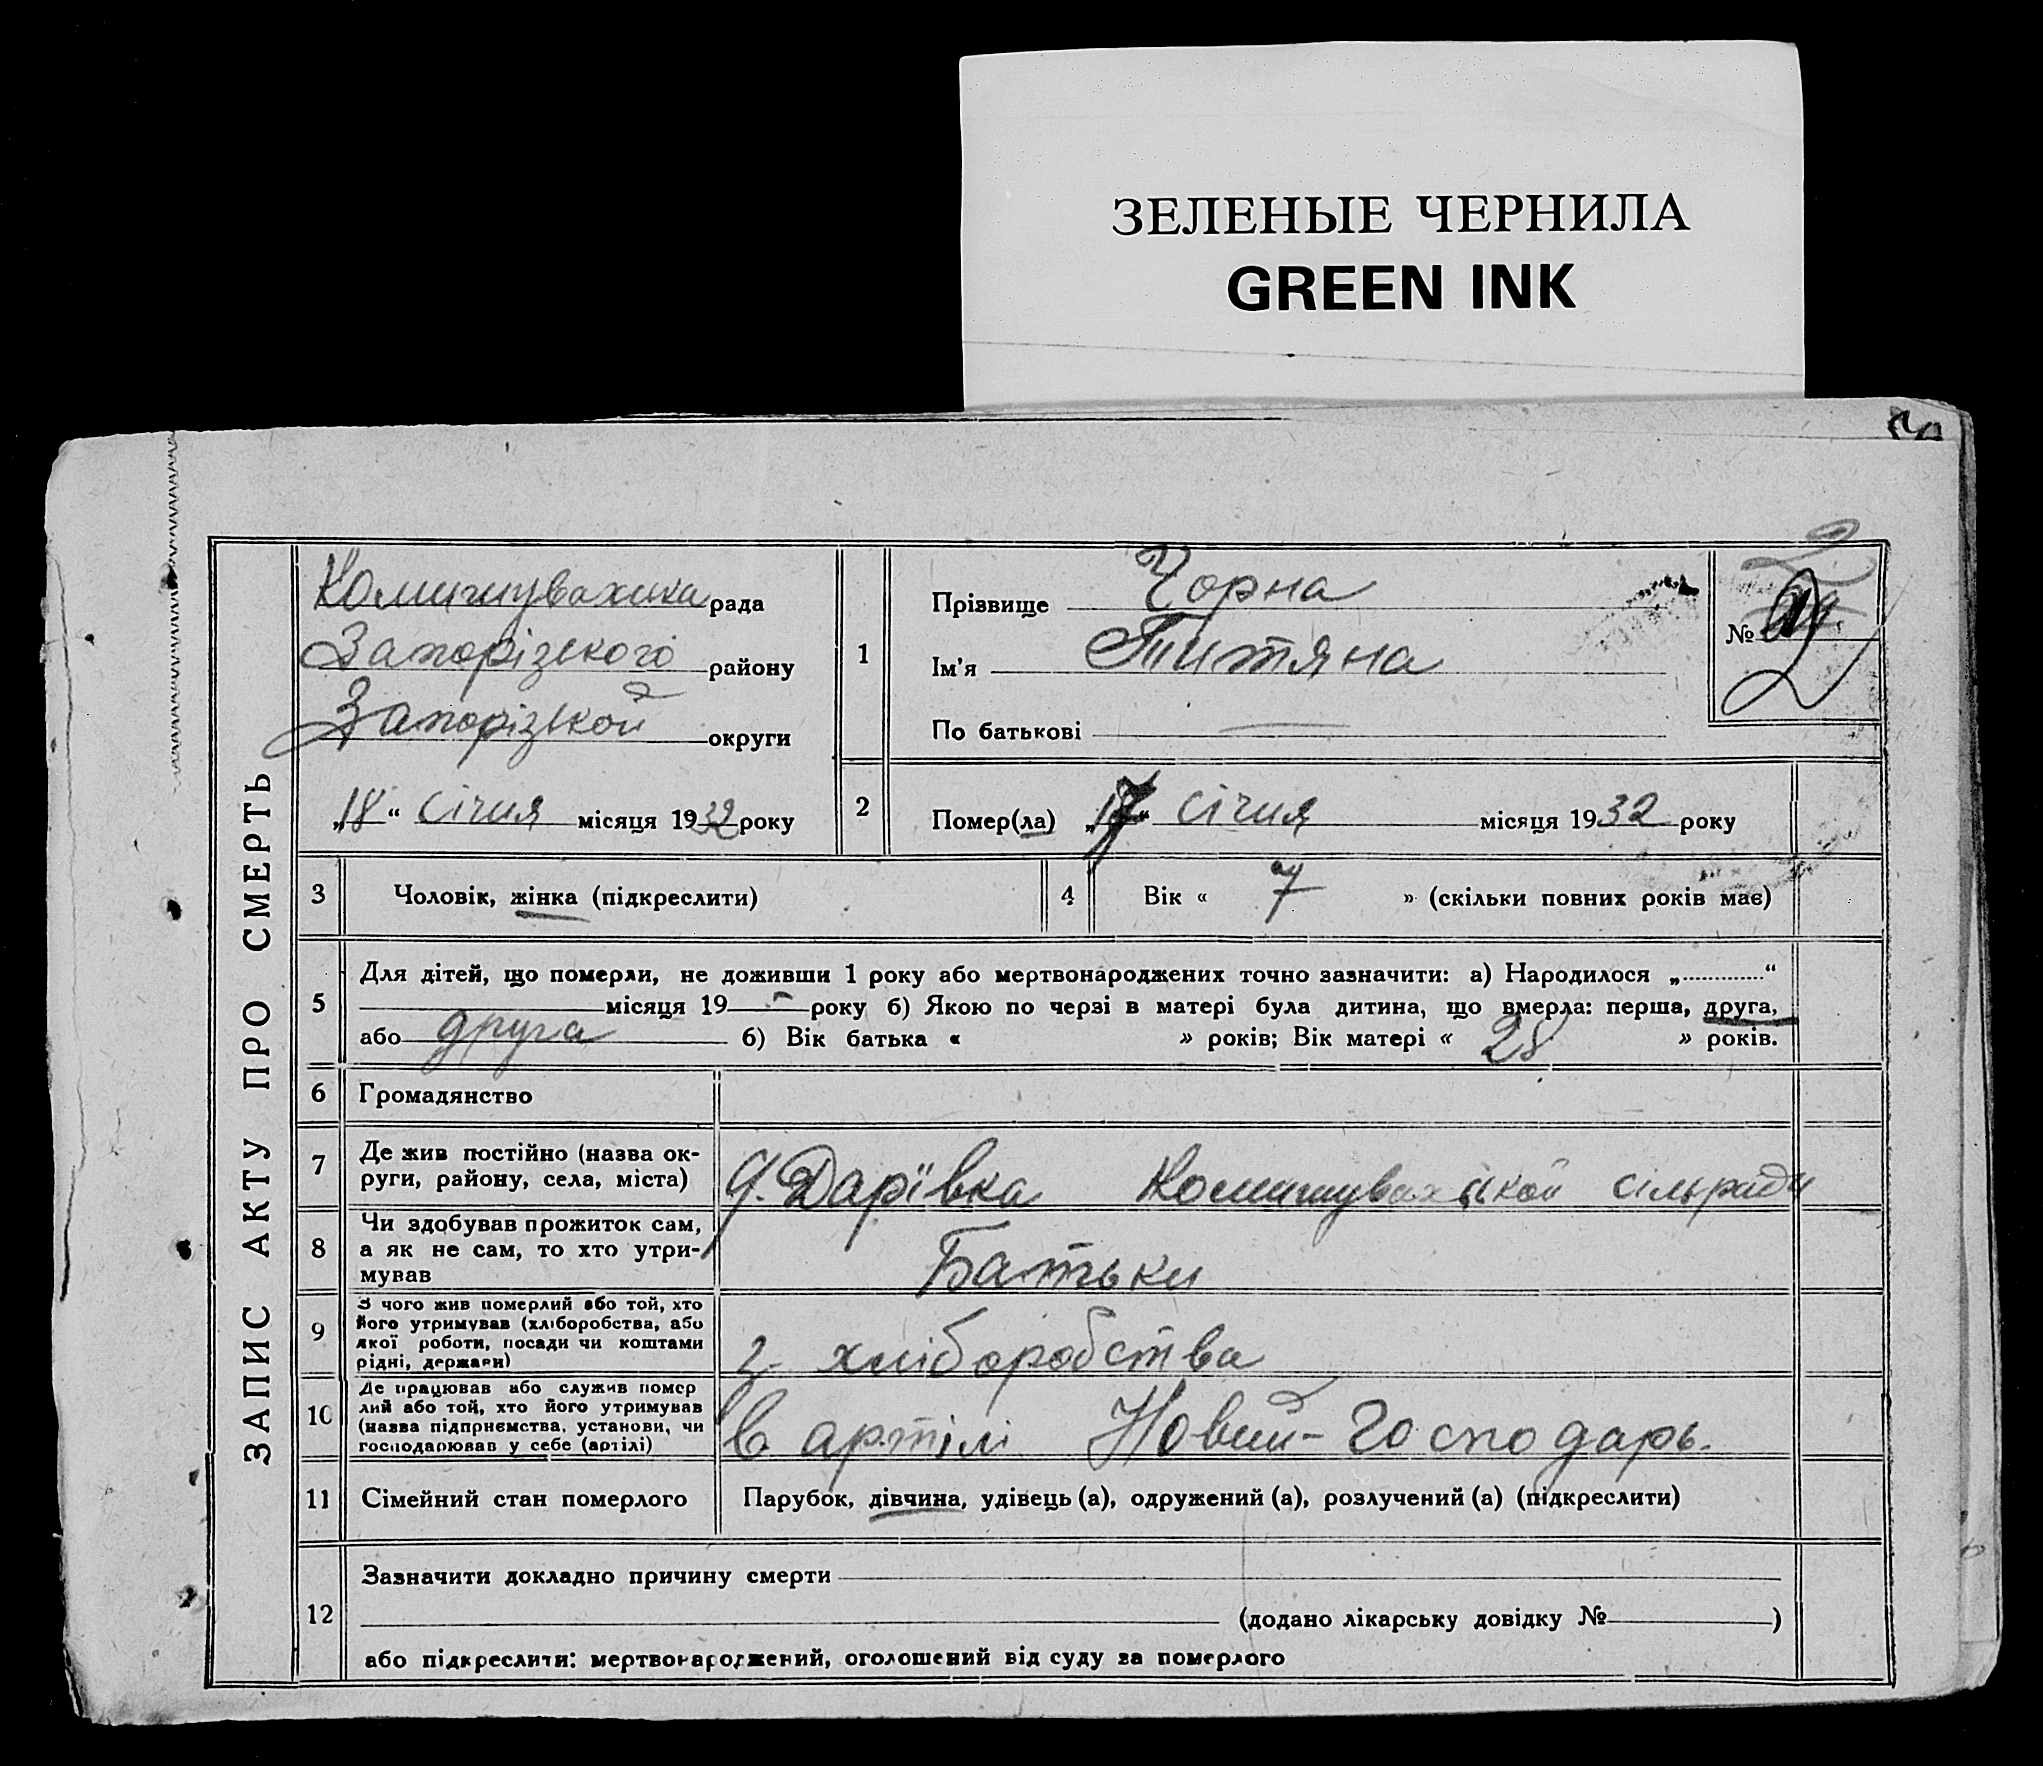 ЗЕЛЕНЫЕ ЧЕРНИЛА
GREEN INK
ЗАПИС АКТУ ПРО СМЕРТЬ
Комишувахська рада
Запорізского району
Запорізской округи
„18“ січня місяця 1932 року
1
Прізвище Чорна
Ім'я Титяна
По батькові —
№ 2
2
Помер(ла) „17“ січня місяця 1932 року
3
Чоловік, жінка (підкреслити)
4
Вік « 7 » (скільки повних років має)
5
Для дітей, що померли, не доживши 1 року або мертвонароджених точно зазначити: а) Народилося „ “
місяця 19 - року б) Якою по черзі в матері була дитина, що вмерла: перша, друга,
або друга б) Вік батька « » років; Вік матері « 28 » років.
6
Громадянство
7
Де жив постійно (назва ок-
руги, району, села, міста)
д. Дарївка Комишувахськой сільради
8
Чи здобував прожиток сам,
а як не сам, то хто утри-
мував
Батьки
9
З чого жив померлий або той, хто
його утримував (хліборобства, або
якої роботи, посади чи коштами
рідні, держави)
з хліборобства
10
Де працював або служив помер
лий або той, хто його утримував
(назва підприємства, установи, чи
господарював у себе (артілі)
в артілі Новий-Господарь.
11
Сімейний стан померлого
Парубок, дівчина, удівець (а), одружений (а), розлучений (а) (підкреслити)
12
Зазначити докладно причину смерти
(додано лікарську довідку № )
або підкреслити: мертвонароджений, оголошений від суду за померлого